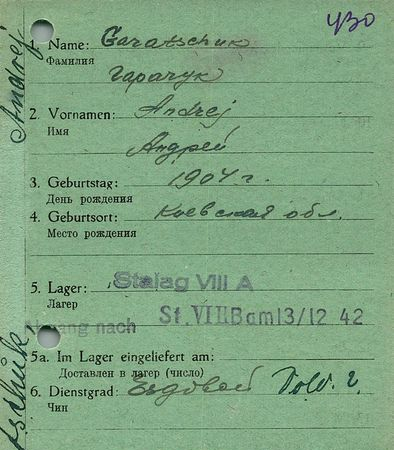 430
1. Name: Garatschuk
Фамилия
Гарачук
2. Vornamen: Andrej
Имя
Андрей
3. Geburtstag: 1904 г.
День рождения
4. Geburtsort: Киевская обл.
Место рождения
5. Lager: Stalag VIII A
Лагер
nach St. VIII B am 13/12 42
5a. Im Lager eingeliefert am:
Доставлен в лагер (число)
6. Dienstgrad: Ездовой Sold.
Чин
Andrej